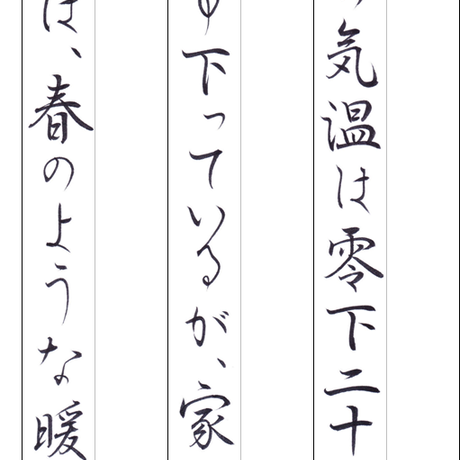 気温は零下二十
下っているが、家
は、春のような暖